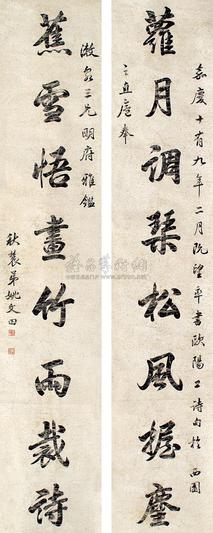 嘉慶十有九年二月既望率書歐陽公詩句於西園
蘿月调琹松風握麈
之直廬奉
漱泉三兄明府雅鑑
蕉雪悟畫竹雨裁詩
秋農弟姚文田